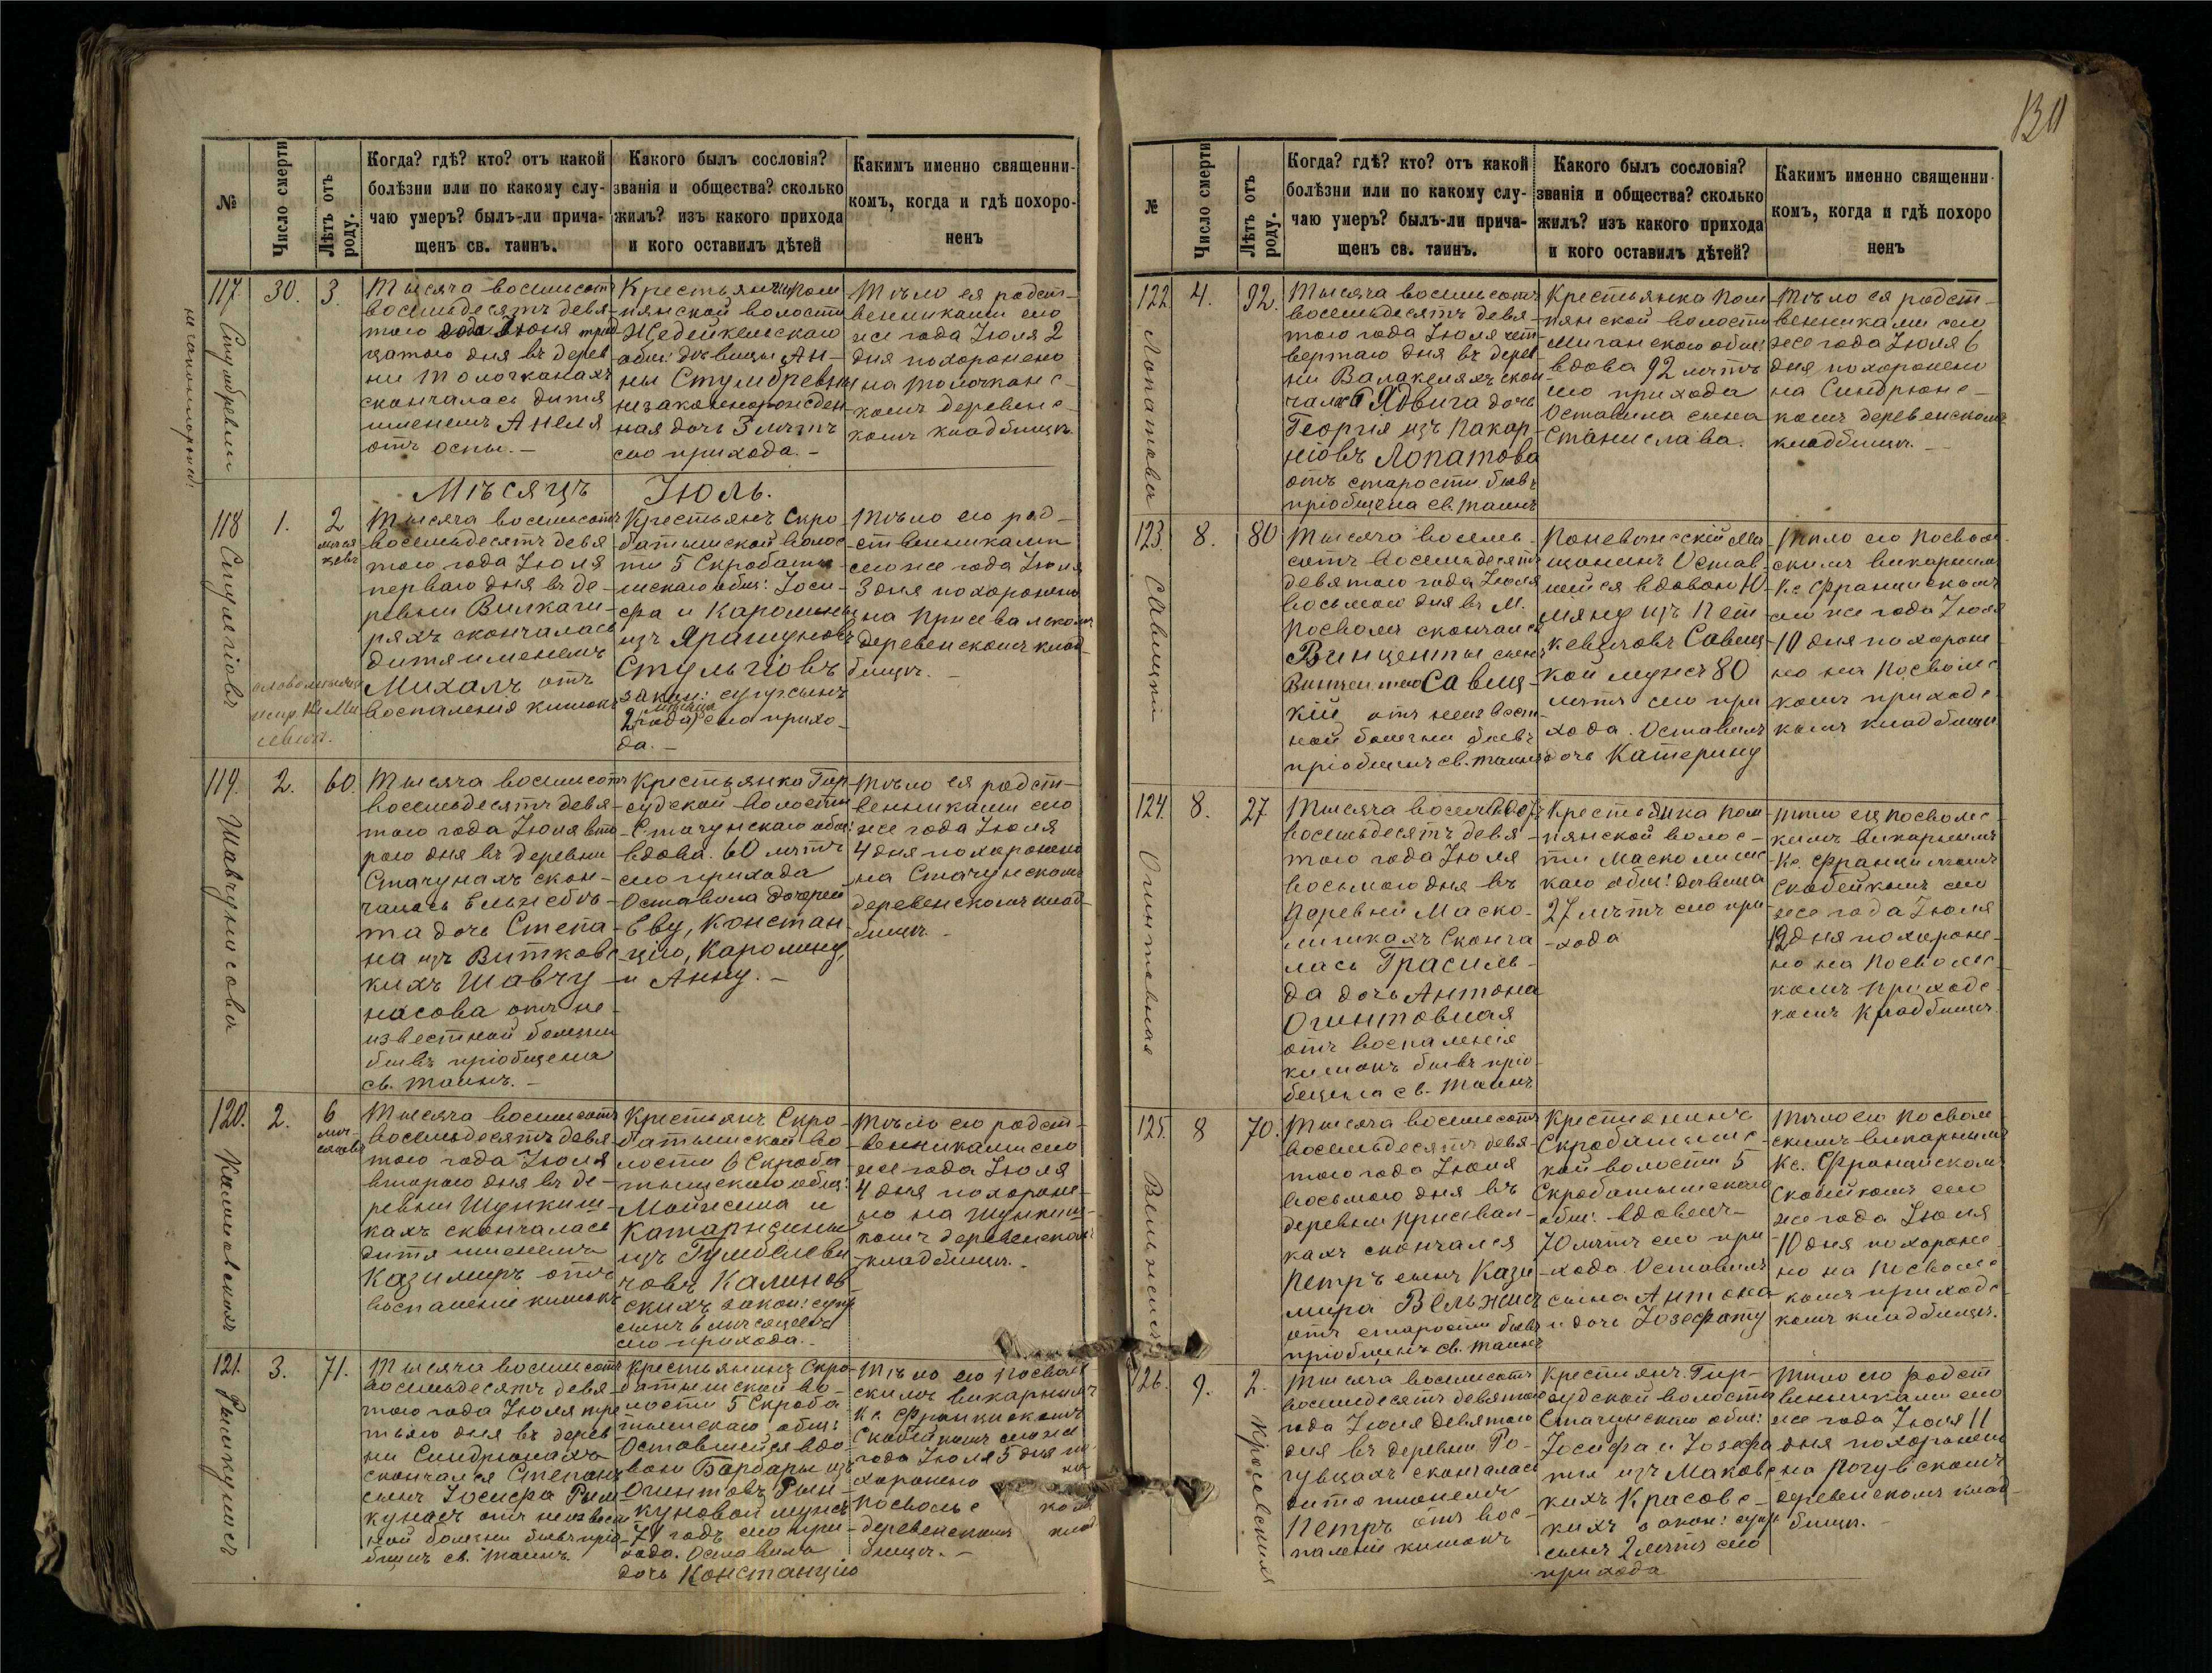 130
№
Число смерти
Лѣтъ отъ роду.
Когда? гдѣ? кто? отъ какой
болѣзни или по какому слу-
чаю умеръ? былъ-ли прича-
щенъ св. таинъ.
Какого былъ сословія?
званія и общества? сколько
жилъ? изъ какого прихода
и кого оставилъ дѣтей
Какимъ именно священни-
комъ, когда и гдѣ похоро-
ненъ
117.
30.
3.
Тысяча восемьсотъ
восемьдесятъ девя-
того года Іюня трид
цатого дня въ дерев
ни Толочканахъ
скончалась дитя
именемъ Анеля
отъ оспы. —
пянской волости
общ: дѣвицы Ан-
ны Стумбревны
незаконнорожден
ная дочь 3 лѣтъ
сего прихода. —
Тѣло ея родст-
венниками сего
же года Іюля 2
дня похоронено
на Толочканс-
комъ деревенс-
комъ кладбищѣ.
Мѣсяцъ Іюль.
118
1.
2
меся
цевъ
Тысяча восемьсотъ
восемьдесятъ девя
того года Іюля
перваго дня въ де-
ревни Вилкаги-
ряхъ скончалась
дитя именемъ
Михалъ отъ
воспаленія кишокъ
Крестьянъ Скро-
батышской волос
ти 5 Скробаты-
шскаго общ: Іоси-
фа и Каролины
изъ Ярашуновъ
Стульгіовъ
закон: супр сынъ
2 месяца
года сего прихо-
да. —
Тѣло его род-
ственниками
сего же года Іюля
3 дня похоронено
на Присевалскомъ
деревенскомъ клад-
бищѣ. —
119.
2.
60.
Тысяча восемьсотъ
восемьдесятъ девя-
того года Іюля вто
рого дня въ деревни
Стачунахъ скон-
чалась Ельжбѣ-
та дочь Степа-
на изъ Витковс
кихъ Шавчу-
насова отъ не-
известной болезни
бывъ пріобщена
св. таинъ. —
Крестьянка Гир-
судской волости
Стачунскаго общ:
вдова. 60 лѣтъ
сего прихода
Оставила дочерей
Еву, Констан-
цію, Каролину,
и Анну. —
Тѣло ея родст-
венниками сего
же года Іюля
4 дня похоронено
на Стачунскомъ
деревенскомъ клад-
бищѣ. —
120.
2.
6
Тысяча восемьсотъ
восемьдесятъ девя-
того года Іюля
второго дня въ де-
ревни Шункиш-
кахъ скончалась
дитя именемъ
Казимиръ отъ
воспаленіе кишокъ
Крестьянъ Скро-
батышской во-
лости 6 Скроба
тышскаго общ:
Мойжеша и
Катаржины
изъ Гумбелеви
човъ Калинов-
скихъ закон: супр
сынъ 6 месяцевъ
сего прихода. —
Тѣло его родст-
венниками сего
же года Іюля
4 дня похороне-
но на Шункиш-
комъ деревенскомъ
кладбищѣ. —
121.
3.
71.
Тысяча восемьсотъ
восемьдесятъ девя-
того года Іюля тре
тьяго дня въ дерев
ни Синдріонахъ
скончался Степанъ
сынъ Іосифа Рым
кунасъ отъ неизвест
ной болезни бывъ пріо-
бщенъ св. таинъ.
Крестьянинъ Скро-
батышской во-
лости 5 Скроба
тышскаго общ:
Оставшейся вдо
вою Барбары изъ
Огинтовъ Рым-
куновой мужъ
71 годъ сего при-
хода. Оставилъ
дочь Констанцію
Тѣло его Посволь
скимъ викарнымъ
Кс. Францискомъ
Скобейкомъ сего же
года Іюля 5 дня по
хоронено на
Посвольс ком
деревенскомъ клад
бищѣ. —
№
Число смерти
Лѣтъ отъ роду.
Когда? гдѣ? кто? отъ какой
болѣзни или по какому слу-
чаю умеръ? былъ-ли прича-
щенъ св. таинъ.
Какого былъ сословія?
званія и общества? сколько
жилъ? изъ какого прихода
и кого оставилъ дѣтей?
Какимъ именно священни-
комъ, когда и гдѣ похоро
ненъ
122
4.
92.
Лопатова
Тысяча восемьсотъ
восемьдесятъ девя-
того года Іюля чет
вертаго дня въ дерев
ни Валакеляхъ скон
чалась Ядвига дочь
Георгія изъ Пакар
ніовъ Лопатова
отъ старости бывъ
пріобщена св. таинъ
Крестьянка Пом
пянской волости
вдова 92 лѣтъ
сего прихода
Оставила сына
Станислава.
Тѣло ея родст-
венниками сего
же года Іюля 6
дня похоронено
на Синдріонс-
комъ деревенскомъ
кладбищѣ. —
123.
8.
80
Савицкій
Тысяча восемь-
сотъ восемьдесятъ
девятого года Іюля
восьмого дня въ М.
Посволи скончался
Винценты сынъ
Винцентого Савиц-
кій отъ неизвест-
ной болезни бывъ
пріобщенъ св. таинъ
Поневежскій Мѣ
щанинъ Остав-
шейся вдовою Ю
ліяну изъ Пет
кевичовъ Савиц
кой мужъ 80
лѣтъ сего при
хода. Оставилъ
дочь Катерину
Тѣло его Посволь
скимъ викарнымъ
Кс. Францискомъ
сего же года Іюля
10 дня похороне-
но на Посвольс
комъ приходс
комъ кладбищѣ
124.
8.
27
Огинтовная
Тысяча восемьсотъ
восемьдесятъ девя-
того года Іюля
восьмого дня въ
деревни Маско-
лишкахъ Сконча
лась Грасиль-
да дочь Антона
Огинтовная
отъ воспаленія
кишокъ бывъ пріо-
бщена св. таинъ
Крестьянка Пом
пянской волос-
ти Масколишс
каго общ: дѣвица
27 лѣтъ сего при
-хода
Тѣло ея Посвольс-
кимъ викарнымъ
Кс. Францискомъ
Скобейкомъ сего
же года Іюля
12 дня похороне-
но на Посвольс-
комъ приходс
комъ кладбищѣ.
125.
8
70.
Тысяча восемьсотъ
восемьдесятъ девя-
того года Іюля
восьмого дня въ
деревни Присевал-
кахъ скончался
Петръ сынъ Кази
мира Вельжисъ
отъ старости бывъ
пріобщенъ св. таинъ
Крестьянинъ
Скробатышс-
кой волости 5
Скробатышскаго
общ: вдовецъ
70 лѣтъ сего при
хода. Оставилъ
сына Антона
и дочь Іозефату
Тѣло его Посволь
скимъ викарнымъ
Кс. Францискомъ
Скобейкомъ сего
же года Іюля
10 дня похороне
но на Посвольс
комъ приходс
комъ кладбищѣ.
126.
9.
2.
Тысяча восемьсотъ
восемьдесятъ девятого
года Іюля девятого
дня въ деревни Ро-
гувцахъ скончалась
дитя именемъ
Петръ отъ вос-
паленіе кишокъ
Крестьянъ Гир-
судской волости
Стачунскаго общ:
Іосифа и Іозефа
ты изъ Маковс
кихъ Красовс-
кихъ закон: супр
сынъ 2 лѣтъ сего
прихода
Тѣло его родст
венниками сего
же года Іюля 11
дня похоронено
на Рогувскомъ
деревенскомъ клад-
бищѣ. —